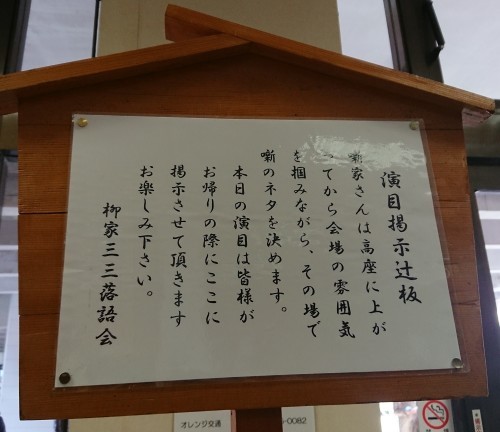 演目掲示辻板
噺家さんは高座に上が
ってから会場の雰囲気
を掴みながら、その場で
噺のネタを決めます。
本日の演目は皆様が
お帰りの際にここに
掲示させて頂きます
お楽しみ下さい。
柳家三三落語会
オレンジ交通
-0082